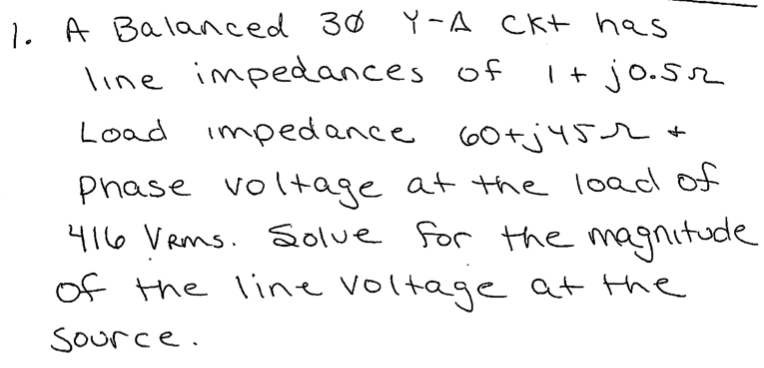 1. A Balanced 3Ø Y-Δ CKt has
line impedances of 1 + j0.5Ω
Load impedance 60+j45Ω +
Phase voltage at the load of
416 VRMS. Solve for the magnitude
of the line voltage at the
Source.